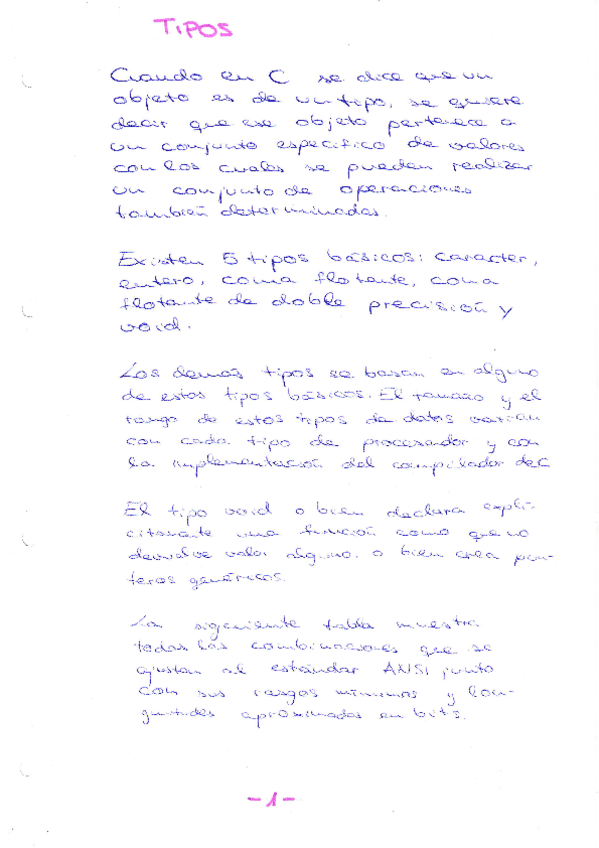 TIPOS
Cuando en C se dice que un
objeto es de un tipo, se quiere
decir que ese objeto pertenece a
un conjunto especifico de valores
con los cuales se pueden realizar
un conjunto de operaciones
también determinadas.
Existen 5 tipos básicos: caracter,
entero, coma flotante, coma
flotante de doble precisión y
void.
Los demas tipos se basan en alguno
de estos tipos básicos. El tamaño y el
rango de estos tipos de datos varian
con cada tipo de procesador y con
la implementación del compilador de C
El tipo void o bien declara expli-
citamente una función como que no
devuelve valor alguno, o bien crea pun-
teros genéricos.
La siguiente tabla muestra
todas las combinaciones que se
ajustan al estándar ANSI junto
con sus rasgos minimos y lon-
gitudes aproximadas en bits.
- 1 -